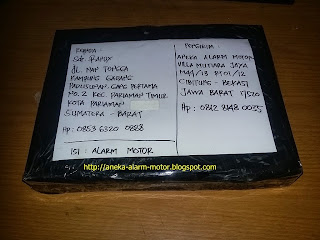 KEPADA :
SDR. RANDY
JL. NAN TONGGA
KAMPUNG GADANG
PARIUSUMAN GANG PERTAMA
NO. 2 KEC. PARIAMAN TIMUR
KOTA PARIAMAN
SUMATERA - BARAT
Hp : 0853 6320 0828
ISI : ALARM MOTOR
PENGIRIM :
ANEKA ALARM MOTOR
VILLA MUTIARA JAYA
RT 01/12
CIBITUNG - BEKASI
JAWA BARAT 17520
Hp : 0812 8148 0035
http://aneka-alarm-motor.blogspot.com